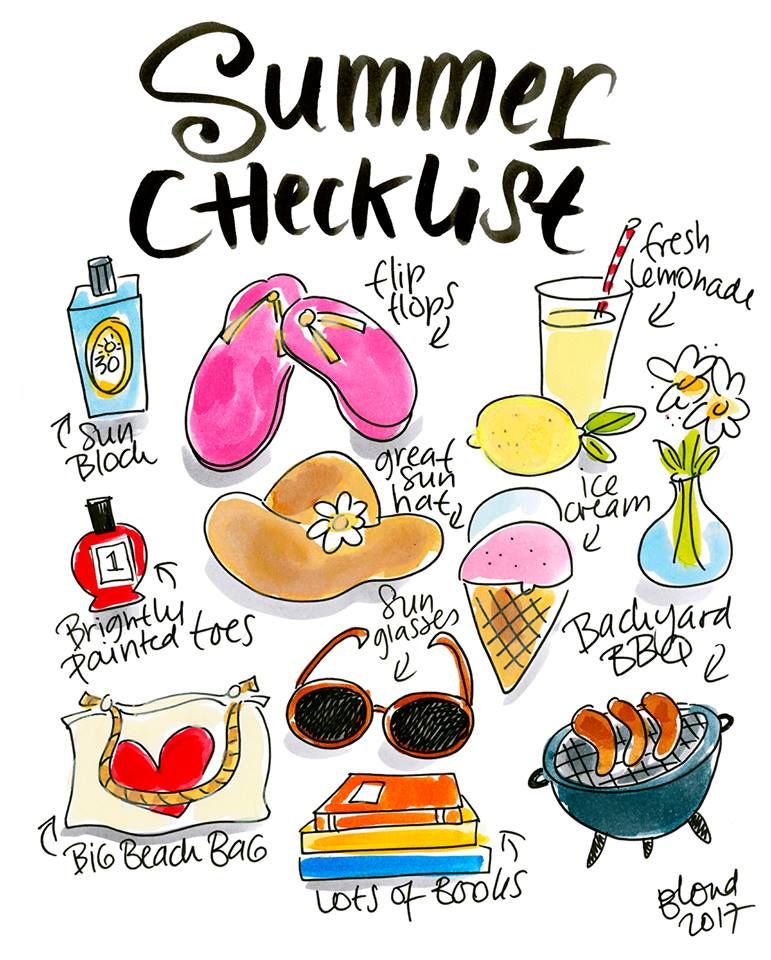 Summer
Checklist
flip
flops
fresh
lemonade
30
Sun
Block
great
sun
hat
ice
cream
1
Brightly
painted toes
Sun
glasses
Backyard
BBQ
BIG BEACH BAG
LOTS OF BOOKS
Blond
2017